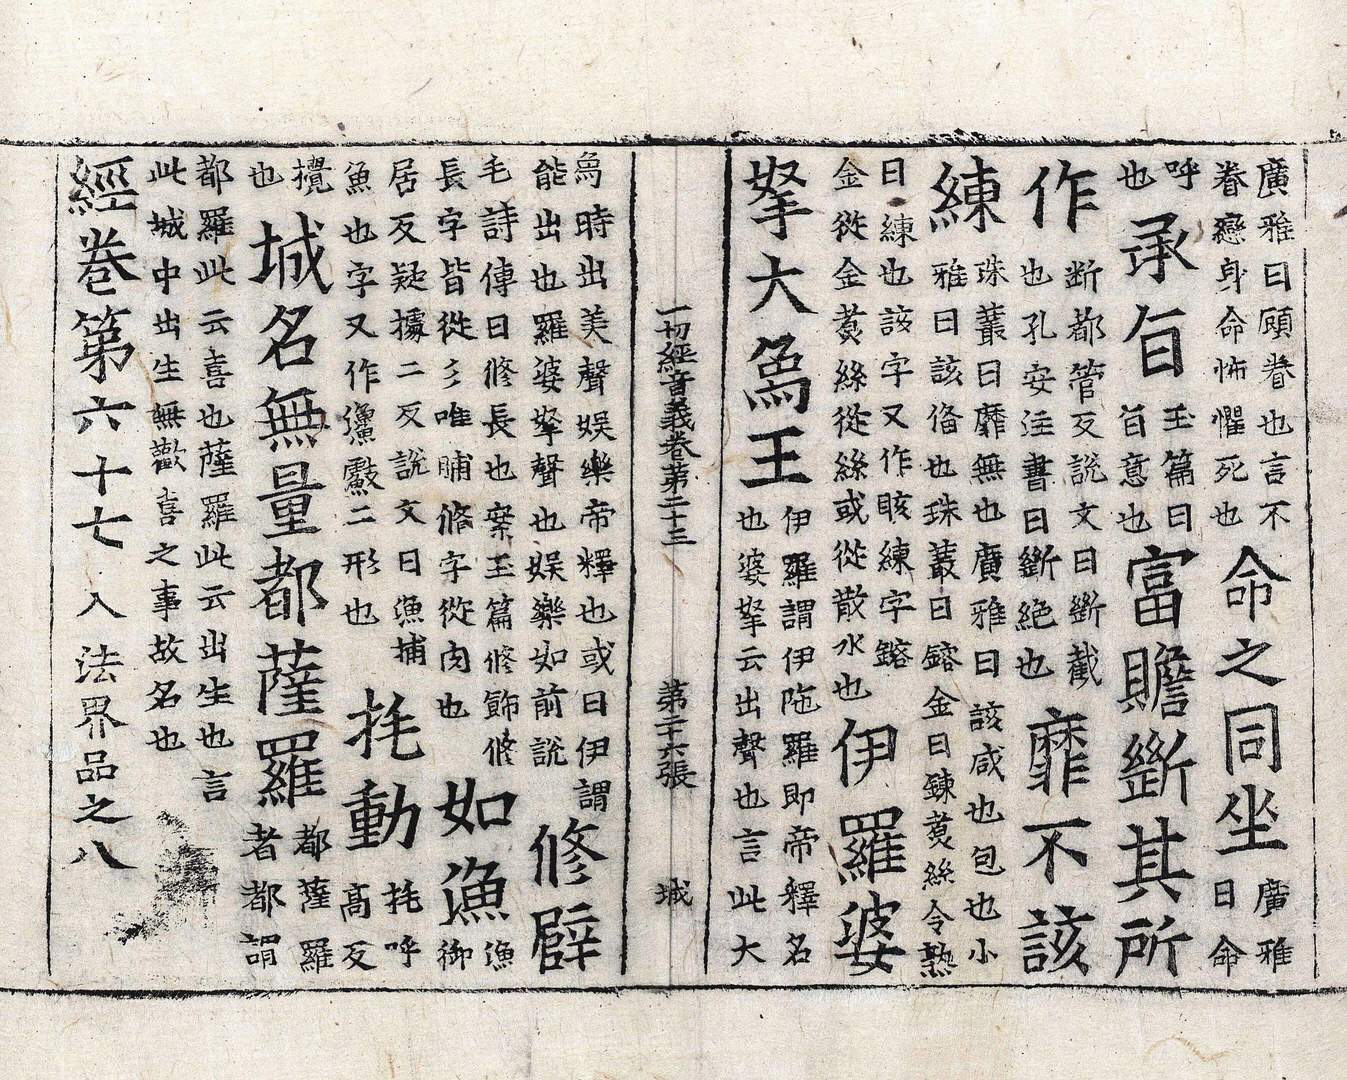 廣雅曰顧眷也言不
眷戀身命怖懼死也
命之同坐
廣雅
曰命
呼
也
承旨
玉篇曰
旨意也
富贍斷其所
作
断都管反說文曰斷截
也孔安注書曰斷絕也
靡不該
練
珠叢曰靡無也廣雅曰該咸也包也小
雅曰該俻也珠叢曰鎔金曰鍊煑絲令熟
曰練也該字又作晐練字鎔
金從金煑絲從絲或從散水也
伊羅婆
拏大為王
伊羅謂伊陁羅即帝釋名
也婆拏云出聲也言此大
一切經音義卷第二十三 第二十六張 城
為時出美聲娛樂帝釋也或曰伊謂
能出也羅婆拏聲也娛樂如前說
修臂
毛詩傳曰修長也案玉篇修飾修
長字皆從彡唯脯脩字從肉也
如漁
漁
御
居反疑據二反說文曰漁捕
魚也字又作𤅟䱷二形也
㧌動
㧌呼
高反
攪
也
城名無量都薩羅
都薩羅
者都謂
都羅此云喜也薩羅此云出生也言
此城中出生無歡喜之事故名也
經卷第六十七 入法界品之八